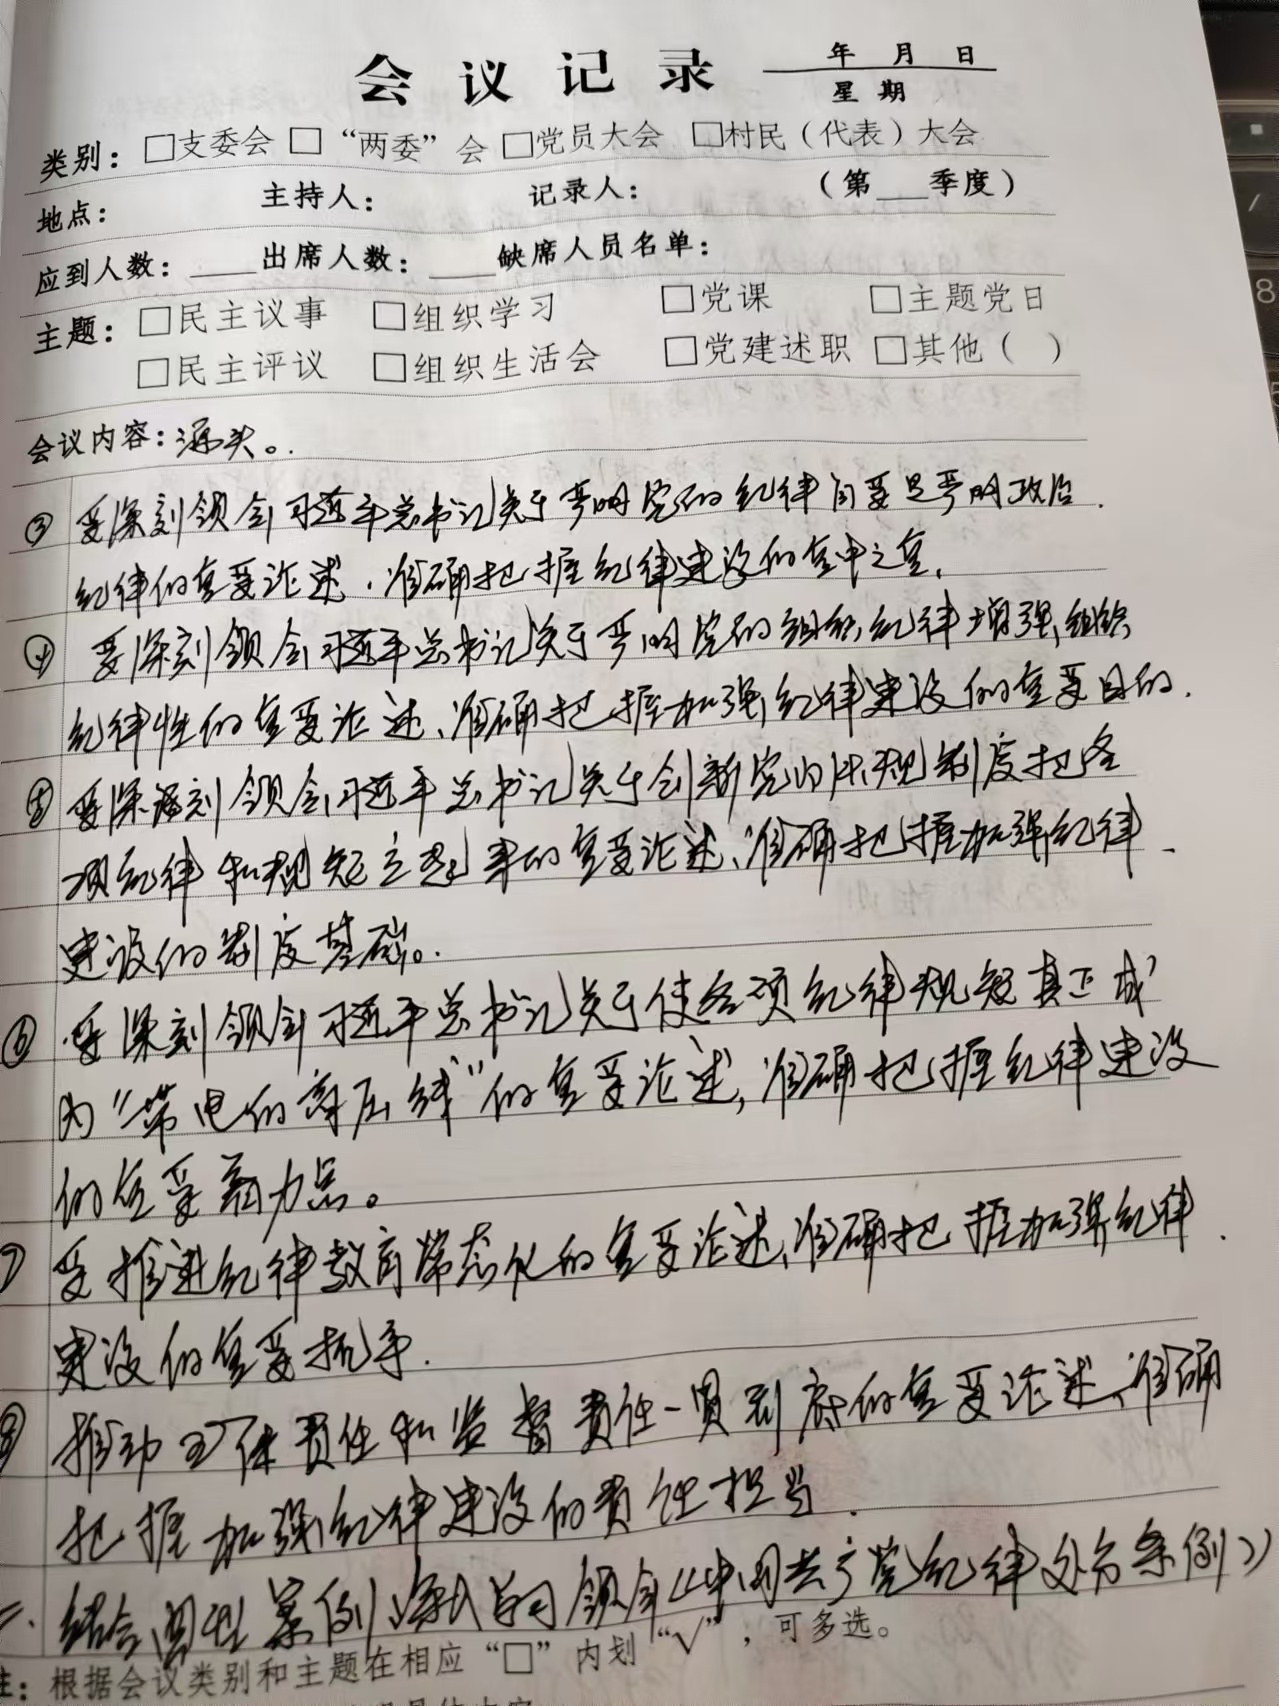 会议记录 年 月 日
星期
类别：□支委会 □“两委”会 □党员大会 □村民（代表）大会
地点： 主持人： 记录人： （第___季度）
应到人数：____出席人数：____缺席人员名单：
主题：□民主议事 □组织学习 □党课 □主题党日
□民主评议 □组织生活会 □党建述职 □其他（ ）
会议内容：源头。
③ 要深刻领会习近平总书记关于严明党的纪律首要是严明政治
纪律的重要论述，准确把握纪律建设的重中之重，
④ 要深刻领会习近平总书记关于严明党的组织纪律增强组织
纪律性的重要论述、准确把握加强纪律建设的重要目的.
⑤ 要深刻领会习近平总书记关于创新党内法规制度把各
项纪律和规矩立起来的重要论述、准确把握加强纪律
建设的制度基础。
⑥ 要深刻领会习近平总书记关于使各项纪律规矩真正成
为“带电的高压线”的重要论述，准确把握纪律建设
的重要着力点。
⑦ 要推进纪律教育常态化的重要论述，准确把握加强纪律
建设的重要抓手.
⑧ 推动主体责任和监督责任一贯到底的重要论述、准确
把握加强纪律建设的责任担当.
二、结合典型案例，深入学习领会《中国共产党纪律处分条例》
注：根据会议类别和主题在相应“□”内划“√”，可多选。